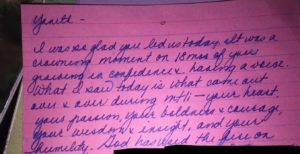 I was so glad you led us today. It was a
crowning moment on 18 mos of your
growing in confidence & having a voice.
What I saw today is what came out
over & over during — your heart,
your passion, your boldness & courage,
your wisdom & insight, and your
humility. God has used the fire on